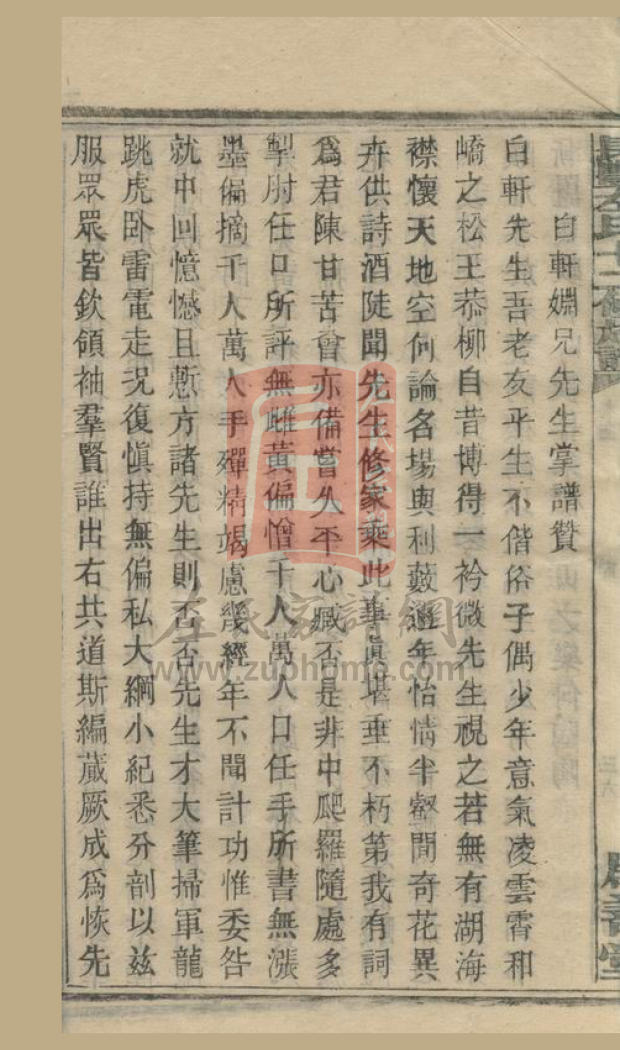 白軒婣兄先生掌譜贊
白軒先生吾老友平生不偕俗子偶少年意氣凌雲霄和
嶠之松王恭柳自昔博得一衿微先生視之若無有湖海
襟懷天地空何論名場與利藪邇年怡情半壑間奇花異
卉供詩酒陡聞先生修家乘此事眞堪垂不朽第我有詞
爲君陳甘苦會亦備嘗久平心臧否是非中爬羅隨處多
掣肘任口所評無雌黃偏憎千人萬人口任手所書無漲
墨偏摘千人萬人手殫精竭慮幾經年不聞計功惟委咎
就中回憶憾且慙方諸先生則否否先生才大筆掃軍龍
跳虎卧雷電走況復慎持無偏私大綱小紀悉分剖以茲
服眾眾皆欽領袖羣賢誰出右共道斯編蕆厥成爲恢先
左氏家譜網
www.zuohome.com